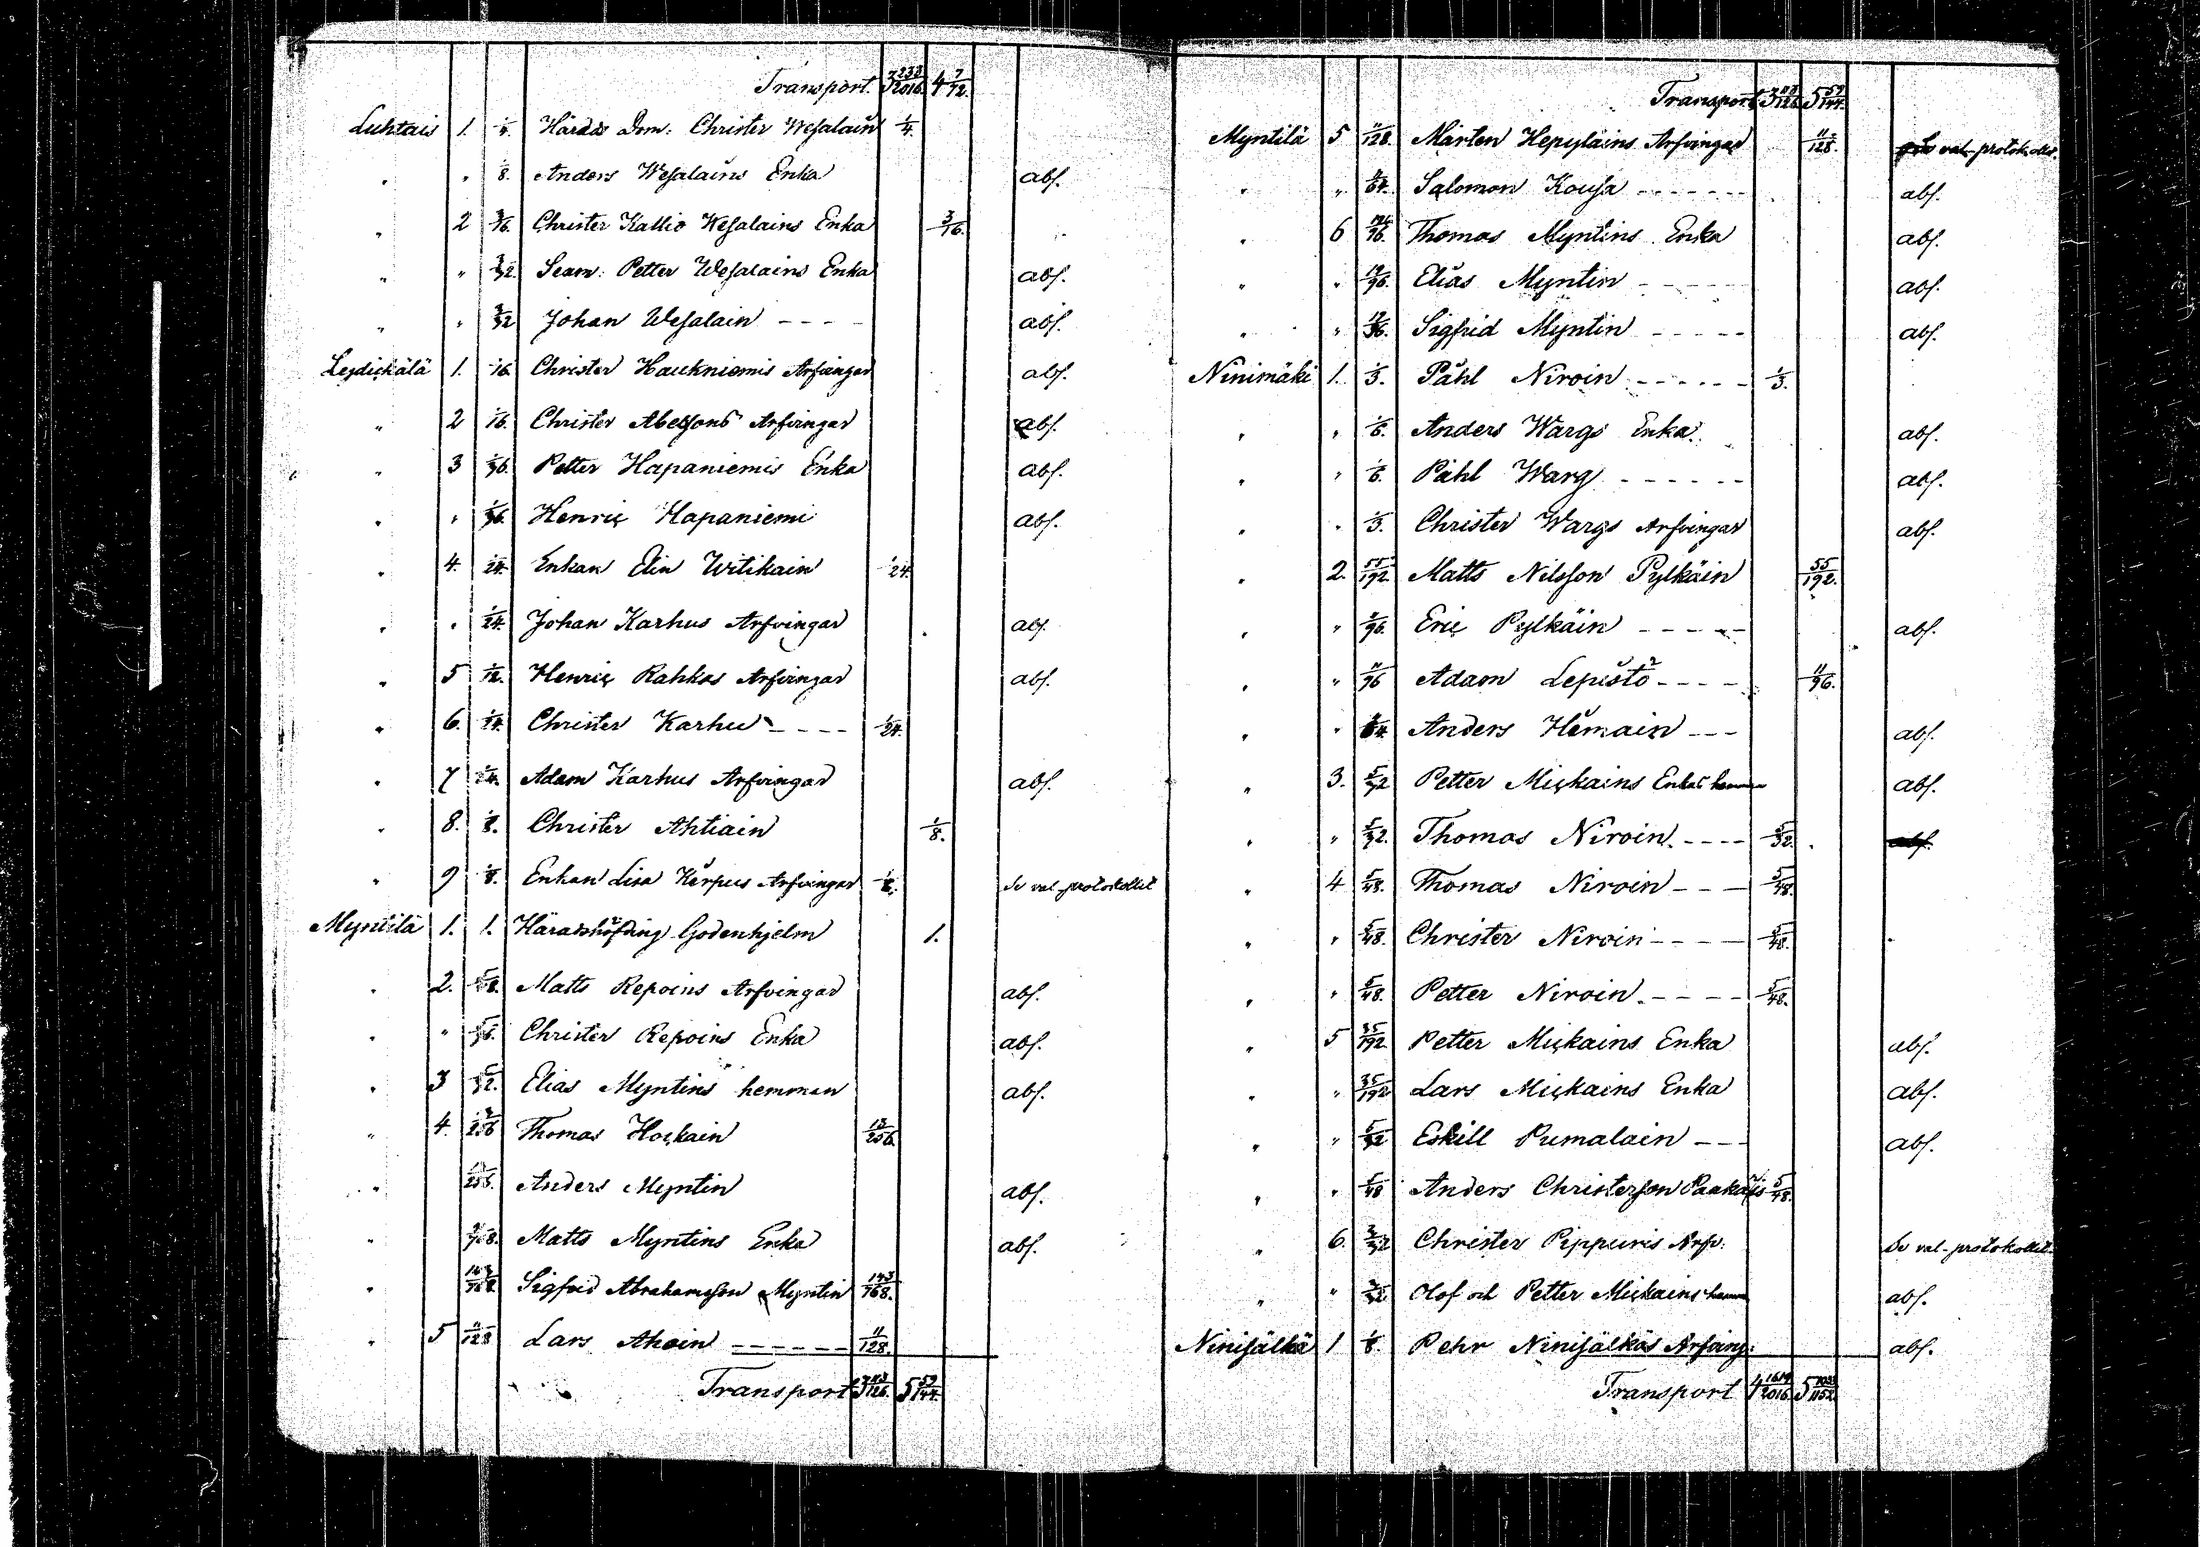 Transport. 3 233/2016. 4 7/72.
Luhtais 1. 1/4. Härads Dom: Christer Wesalain 1/4.
" " 1/8. Anders Wesalains Enka abs.
" 2 3/16. Christer Kallio Wesalains Enka 3/16.
" " 3/32. Petter Wesalains Enka abs.
" " 3/32 Johan Wesalain - - - - abs.
Leydickälä 1. 1/16. Christer Haukniemis Arfvingar abs.
" 2 1/16. Christer Abelsons Arfvingar abs.
" 3 1/96. Petter Hapaniemis Enka abs.
" " 1/96. Henric Hapaniemi abs.
" 4. 1/24. Enkan Elin Witikain 1/24.
" " 1/24. Johan Karhus Arfvingar abs.
" 5 1/12. Henric Rahkos Arfvingar abs.
" 6. 1/24. Christer Karhu - - - - 1/24.
" 7 1/24. Adam Karhus Arfvingar abs.
" 8. 1/8. Christer Ahtiain 1/8.
" 9 1/8. Enkan Lisa Kärpus Arfvingar 1/8. Se val-protokollet
Myntilä 1. 1. Häradshöfding Godenhjelm 1.
" 2. Matts Repoins Arfvingar abs.
" " Christer Repoins Enka abs.
" 3 5/32. Elias Myntins hemman abs.
" 4. Thomas Hockain 13/256.
" Anders Myntin abs.
" Matts Myntins Enka abs.
" 143/768. Sigfrid Abrahamsson Myntin 143/768.
" 5 11/128 Lars Ahoin - - - - - - 11/128.
Transport 3 113/126. 5 59/144.
Transport 3 113/126. 5 59/144.
Myntilä 5 11/128. Mårten Hepyläins Arfvingar 11/128. Se val-protokollet.
" " Salomon Kousa - - - - - - abs.
" 6 Thomas Myntins Enka abs.
" " 19/96. Elias Myntin - - - - - abs.
" " 19/96. Sigfrid Myntin - - - - - abs.
Ninimäki 1. 1/3. Påhl Niroin - - - - - - 1/3.
" " 1/6. Anders Wargs Enka abs.
" " 1/6. Påhl Warg - - - - - - abs.
" " 1/3. Christer Wargs Arfvingar abs.
" 2. 55/192. Matts Nilsson Pylkäin 55/192.
" " Eric Pylkäin - - - - - abs.
" " 11/96 Adam Lepistö - - - - 11/96.
" " Anders Hämäin - - - abs.
" 3. 5/32 Petter Mickains Enkas hemman abs.
" " 5/32. Thomas Niroin. - - - - 5/32. abs.
" 4 5/48. Thomas Niroin - - - 5/48.
" " 5/48. Christer Niroin - - - - 5/48.
" " 5/48. Petter Niroin. - - - - 5/48.
" 5 35/192. Petter Mickains Enka abs.
" " 35/192 Lars Mickains Enka abs.
" " 5/32 Eskill Pumalain - - - abs.
" " 5/48 Anders Christersson 5/48.
" 6. 3/32 Christer Pippuris Arfv: Se val-protokollet
" " 3/32 Olof och Petter Mickains hemman abs.
Ninisälkä 1 1/8. Pehr Ninisälkäs Arfving: abs.
Transport 4 1619/2016. 5